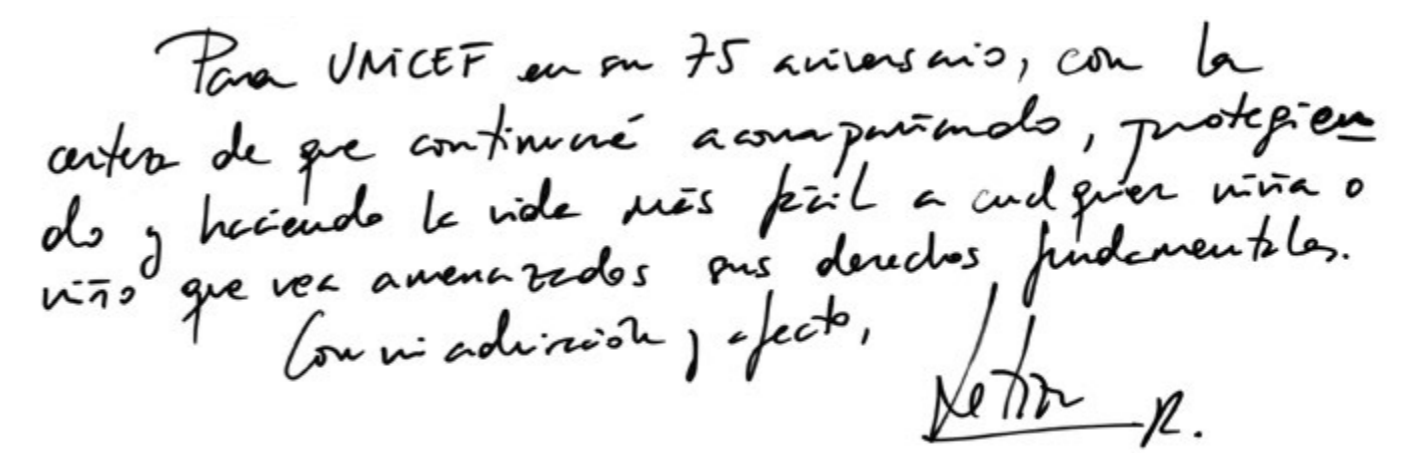 Para UNICEF en su 75 aniversario, con la
certeza de que continuará acompañando, protegien
do y haciendo la vida más fácil a cualquier niña o
niño que vea amenazados sus derechos fundamentales.
Con mi admiración y afecto,
Letizia R.